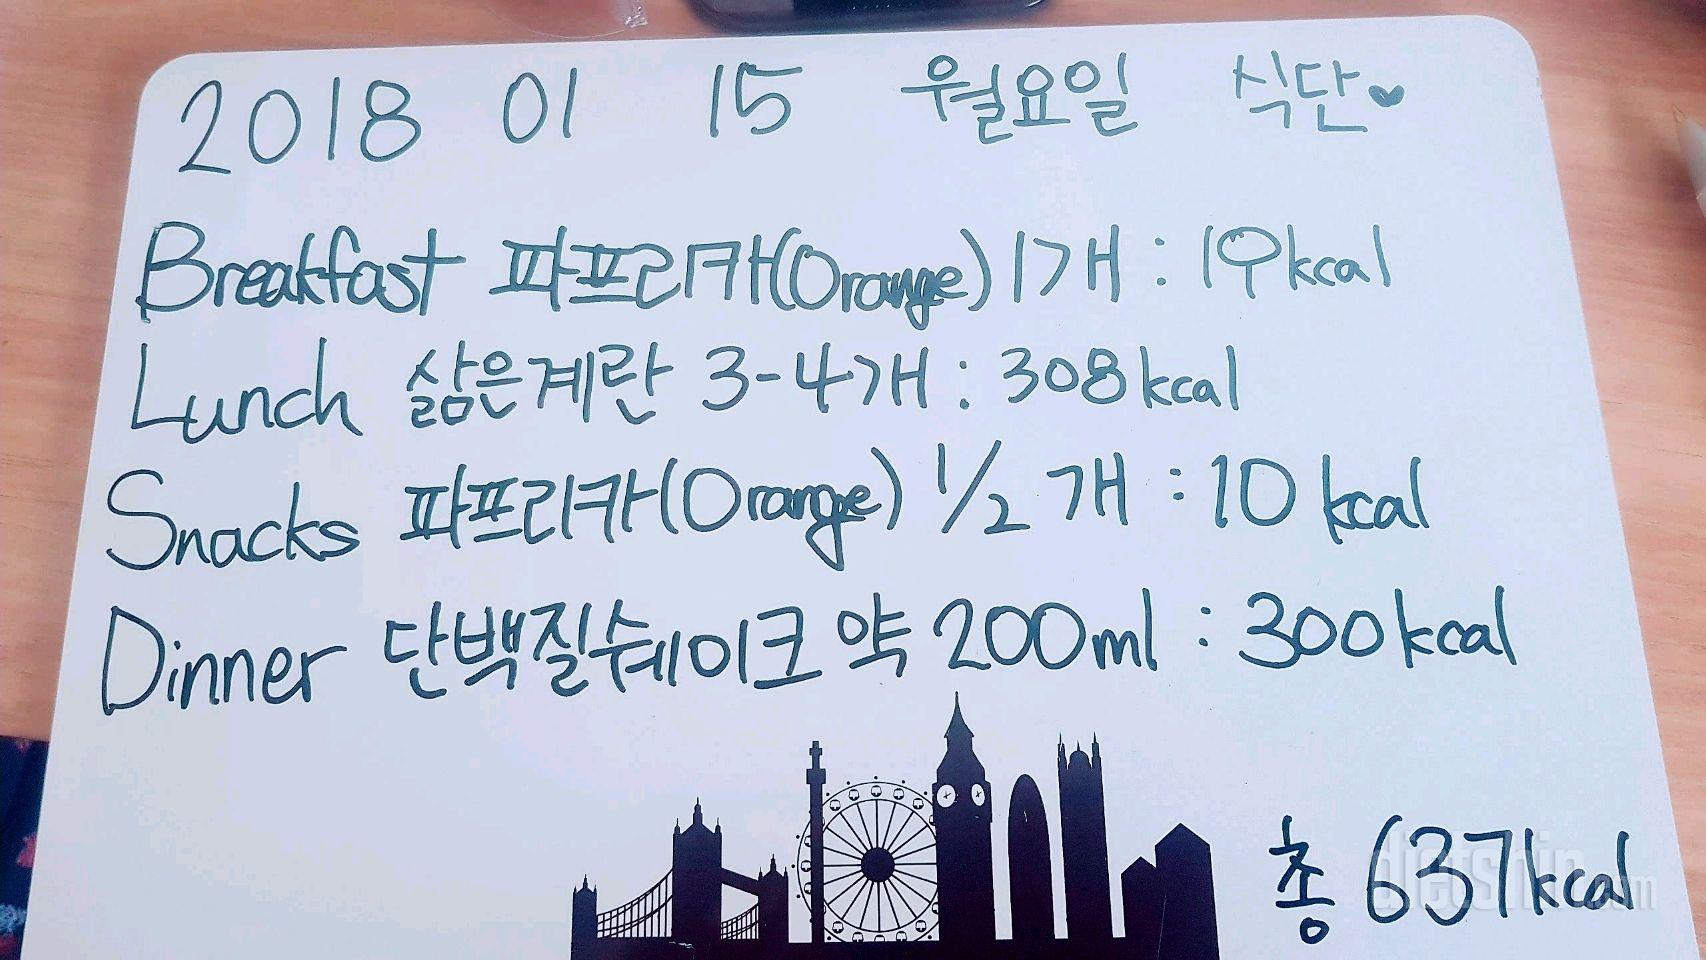 2018 01 15 월요일 식단♥
Breakfast 파프리카(Orange) 1개 : 19kcal
Lunch 삶은계란 3-4개 : 308kcal
Snacks 파프리카(Orange) 1/2 개 : 10 kcal
Dinner 단백질쉐이크 약 200ml : 300kcal
총 637kcal
dietshin.com